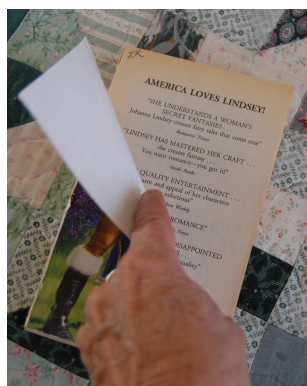 AMERICA LOVES LINDSEY!
"SHE UNDERSTANDS A WOMAN'S
SECRET FANTASIES . . .
Johanna Lindsey creates fairy tales that come true"
Romantic Times
"LINDSEY HAS MASTERED HER CRAFT . . .
she creates fantasy . . .
You want romance—you got it!"
Inside Books
QUALITY ENTERTAINMENT . . .
and appeal of her characters
infectious"
Weekly
ROMANCE"
News
DISAPPOINTED